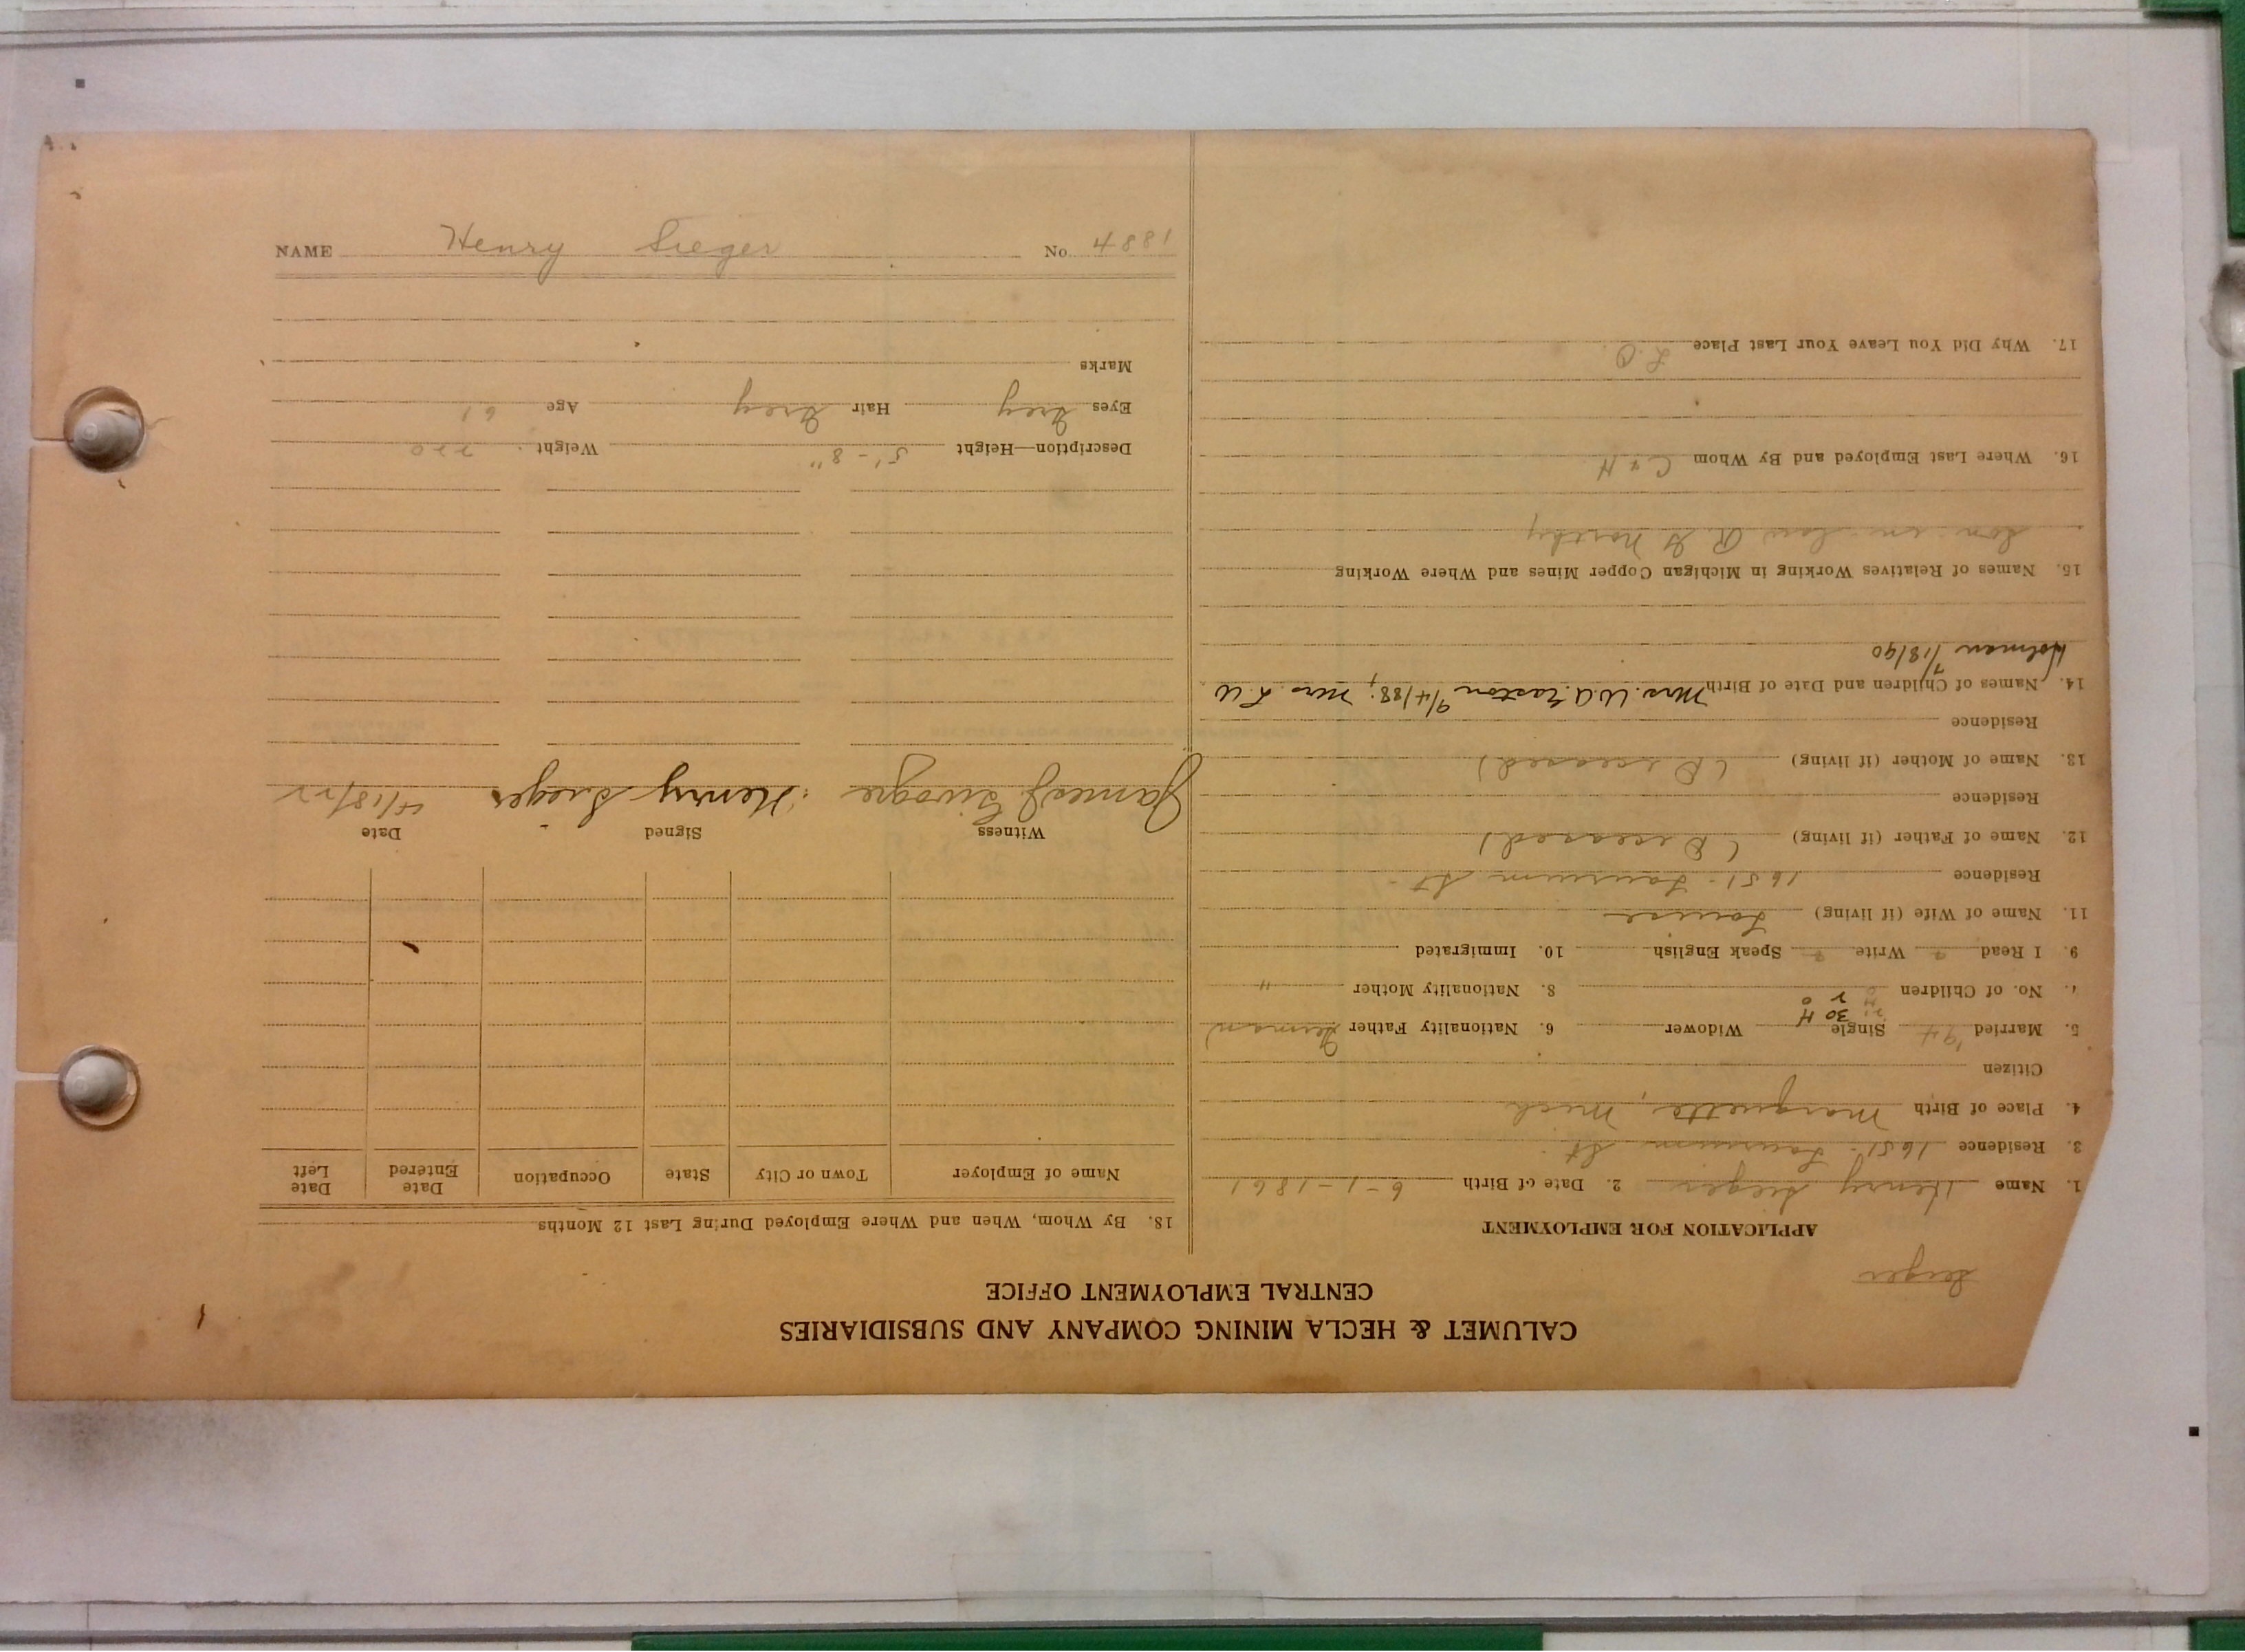 CALUMET & HECLA MINING COMPANY AND SUBSIDIARIES
CENTRAL EMPLOYMENT OFFICE
Seiger
APPLICATION FOR EMPLOYMENT
1. Name Henry Sieger 2. Date of Birth 6-1-1861
3. Residence 1651- Laurium St.
4. Place of Birth Marquette, Mich
Citizen
5. Married '94 Single Widower 6. Nationality Father German
30 H
7. No. of Children 8. Nationality Mother "
9. I Read Write Speak English 10. Immigrated
11. Name of Wife (if living) Louise
Residence 1651- Laurium St-
12. Name of Father (if living) (Deceased)
Residence
13. Name of Mother (if living) (Deceased)
Residence
14. Names of Children and Date of Birth Mrs. W.A. Easton 9/4/88; Mrs. L.W
Holman 7/18/90
15. Names of Relatives Working in Michigan Copper Mines and Where Working
Son-in-law R. G
16. Where Last Employed and By Whom C & H
17. Why Did You Leave Your Last Place L.O.
18. By Whom, When and Where Employed During Last 12 Months
Name of Employer Town or City State Occupation Date Entered Date Left
Witness Signed Date
James Henry Sieger 4/18/22
Description—Height 5'-8" Weight 220
Eyes Grey Hair Grey Age 61
Marks
NAME Henry Sieger No. 4881